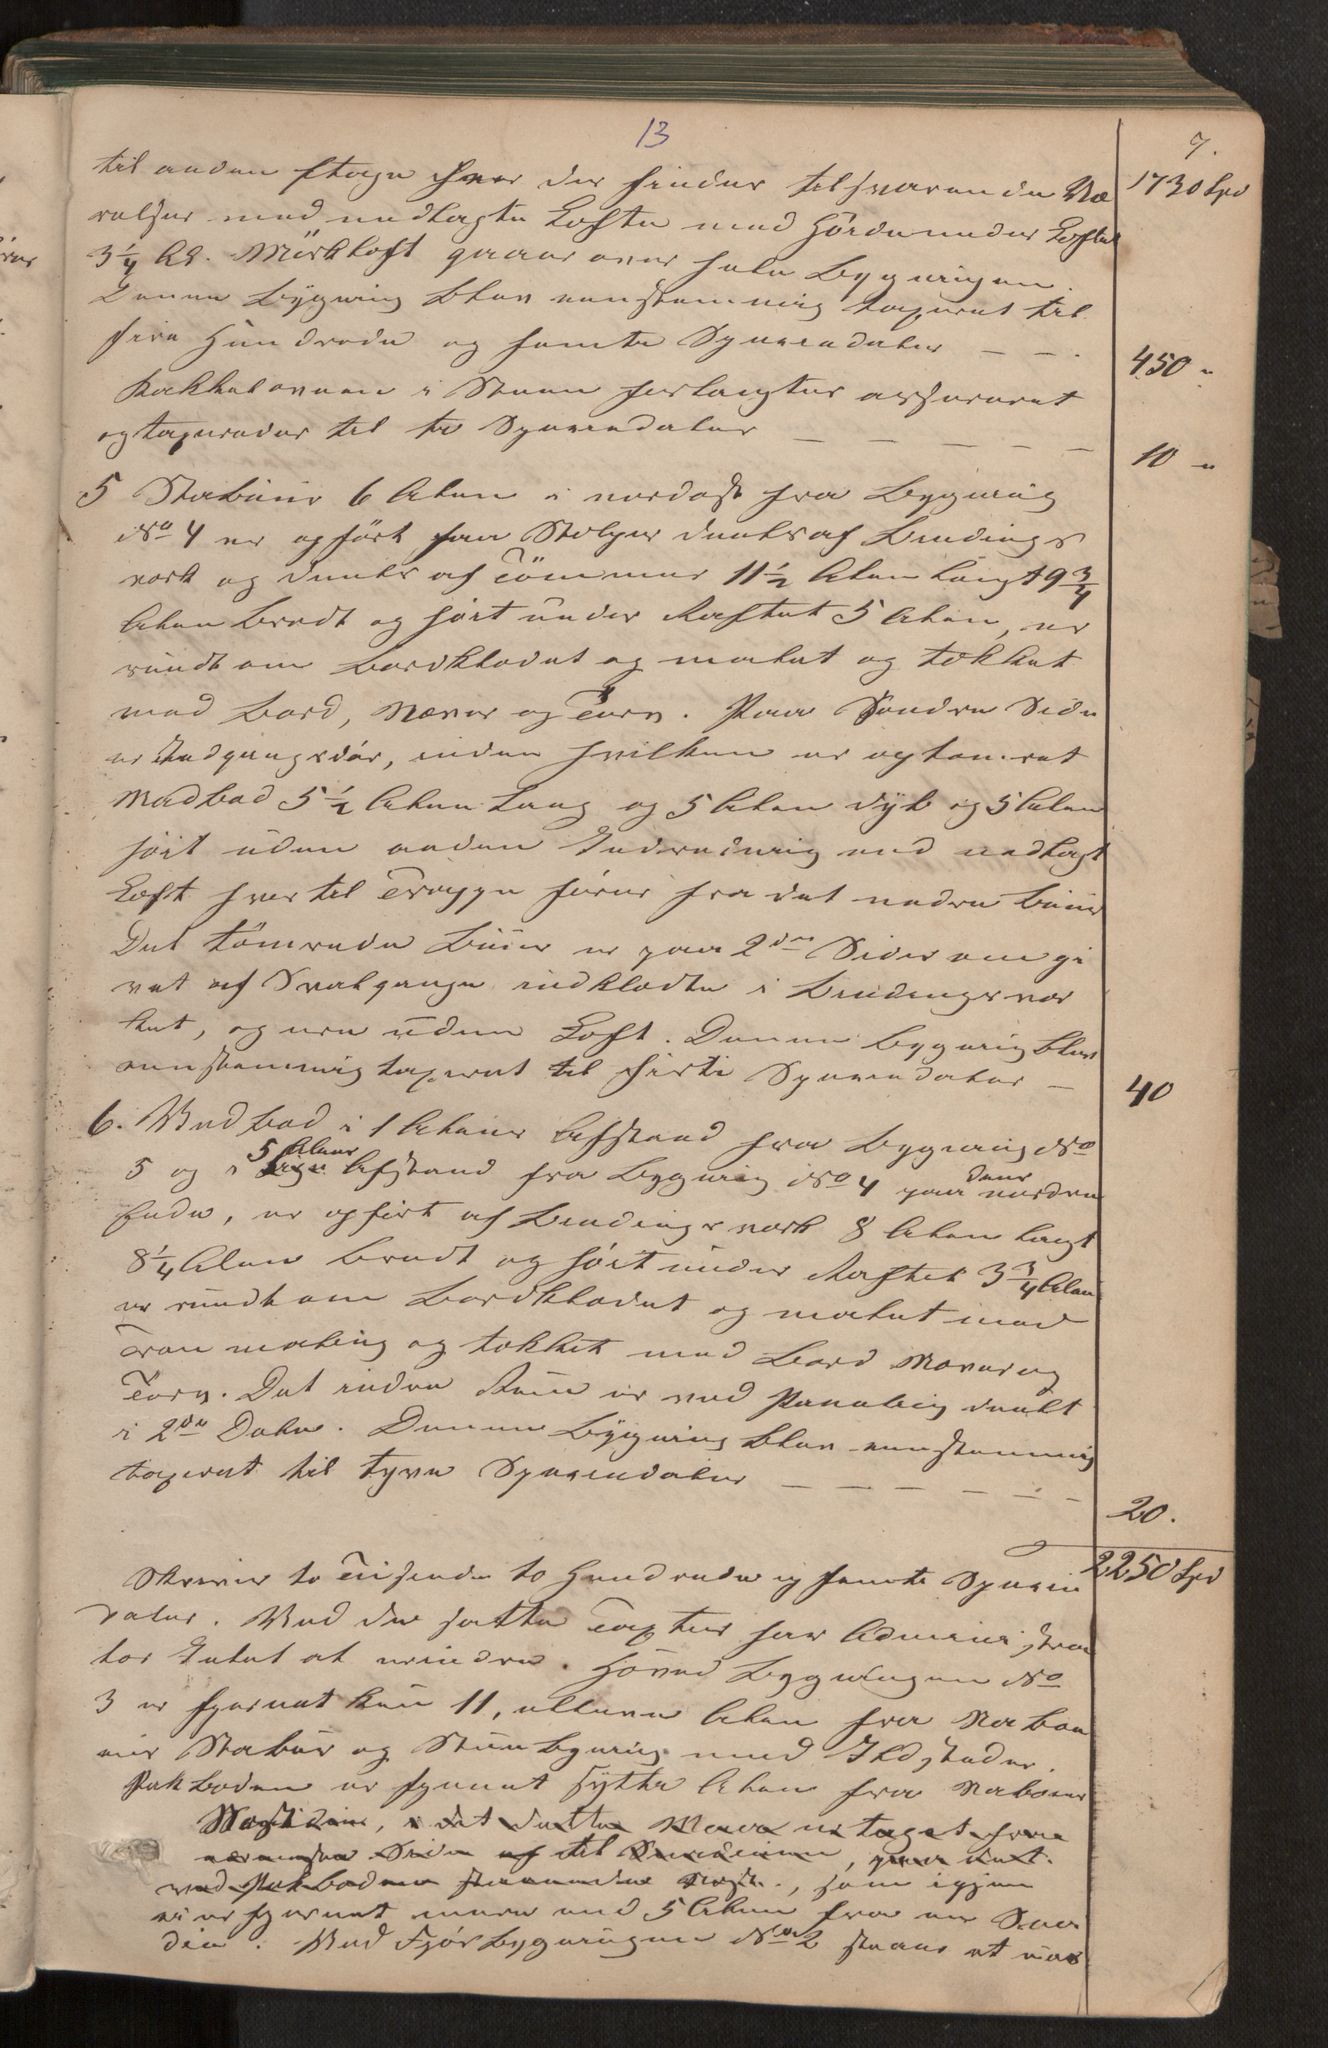 13
7.
til anden Etage hvor der findes tilsvarende Væ 1730 Spd
relser med nedlagte Lofte med Höide under Loftet
3 1/4 Al. Mörkloft gaaer over hele Bygningen.
Denne Bygning blev eenstemmig taxeret til
fire Hundrede og femti Speciedaler — — . 450 "
Kakkelovnen i Stuen forlangtes assureret
og taxeredes til ti Speciedaler — — — — — 10 "
5 Stabuur 6 Alen i nordost fra Bygning
No 4 er opfört paa Stolper deels af Bindings
verk og deels af Tömmer 11 1/2 Alen langt 9 3/4
Alen bredt og höit under Raftet 5 Alen, er
rundt om bordklædet og malet og tækket
med Bord, Næver og Torv. Paa Søndre Side
er Indgangsdör, inden hvilken er optömret
Madbod 5 1/2 Alen lang og 5 Alen dyb og 5 Alen
höit uden anden Indredning end nedlagt
Loft hvortil Trappe förer fra det nedre Buur
Det tömrede Buur er paa 2de Sider omgi
vet af Svalgange indklædte i Bindingsvær
ket, og ere uden Loft. Denne Bygning blev
eenstemmig taxeret til firti Speciedaler — 40
6. Vedbod i 1 Alens Afstand fra Bygning No
5 og i 5 Alens Afstand fra Bygning No 4 paa dens nordre
Ende, er opfört af Bindingsverk 8 Alen langt
8 1/4 Alen bredt og höit under Raftet 3 3/4 Alen
er rundt om bordklædet og malet med
Tran maling og tækket med Bord Næver og
Torv. Det indre Rum er ved Paneling deelt
i 2de Dele. Denne Bygning blev eenstemmig
taxeret til tyve Speciedaler — — — — — — 20.
Skriver to Tusende to Hundrede og femti Specie 2250 Spd
daler. Ved den satte Taxter har Administra
tor Intet at erindre. Hoved Bygningen No
3 er fjernet kun 11, elleve Alen fra Naboe
ens Stabur og Stuebygning med Ildsteder.
Pakboden er fjernet sytten Alen fra Naboens
i det dette Maal er taget fra
nærmeste Side af til Smedien, paa det
ved Pakboden staaende, som igjen
er fjernet mere end 5 Alen fra en Sme
die. Ved Fjös Bygningen No 2 staar et